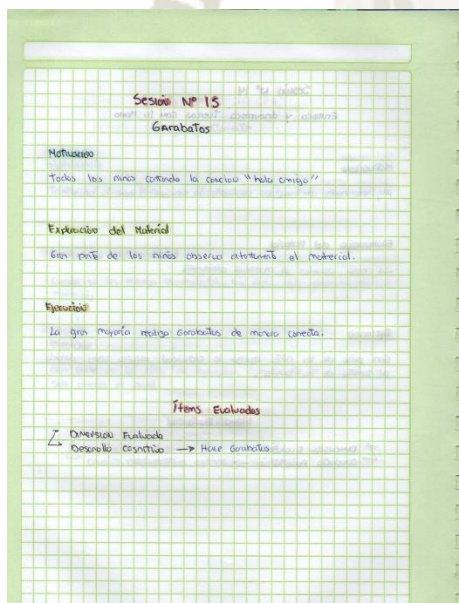 Sesión Nº 15
Garabatos
Motivación
Todos los niños cantando la canción "hola amigo"
Exploración del Material
Gran parte de los niños observa atentamente el material.
Ejecución
La gran mayoría realiza Garabatos de manera correcta.
Ítems Evaluados
Dimensión Evaluada
Desarrollo cognitivo → Hace Garabatos